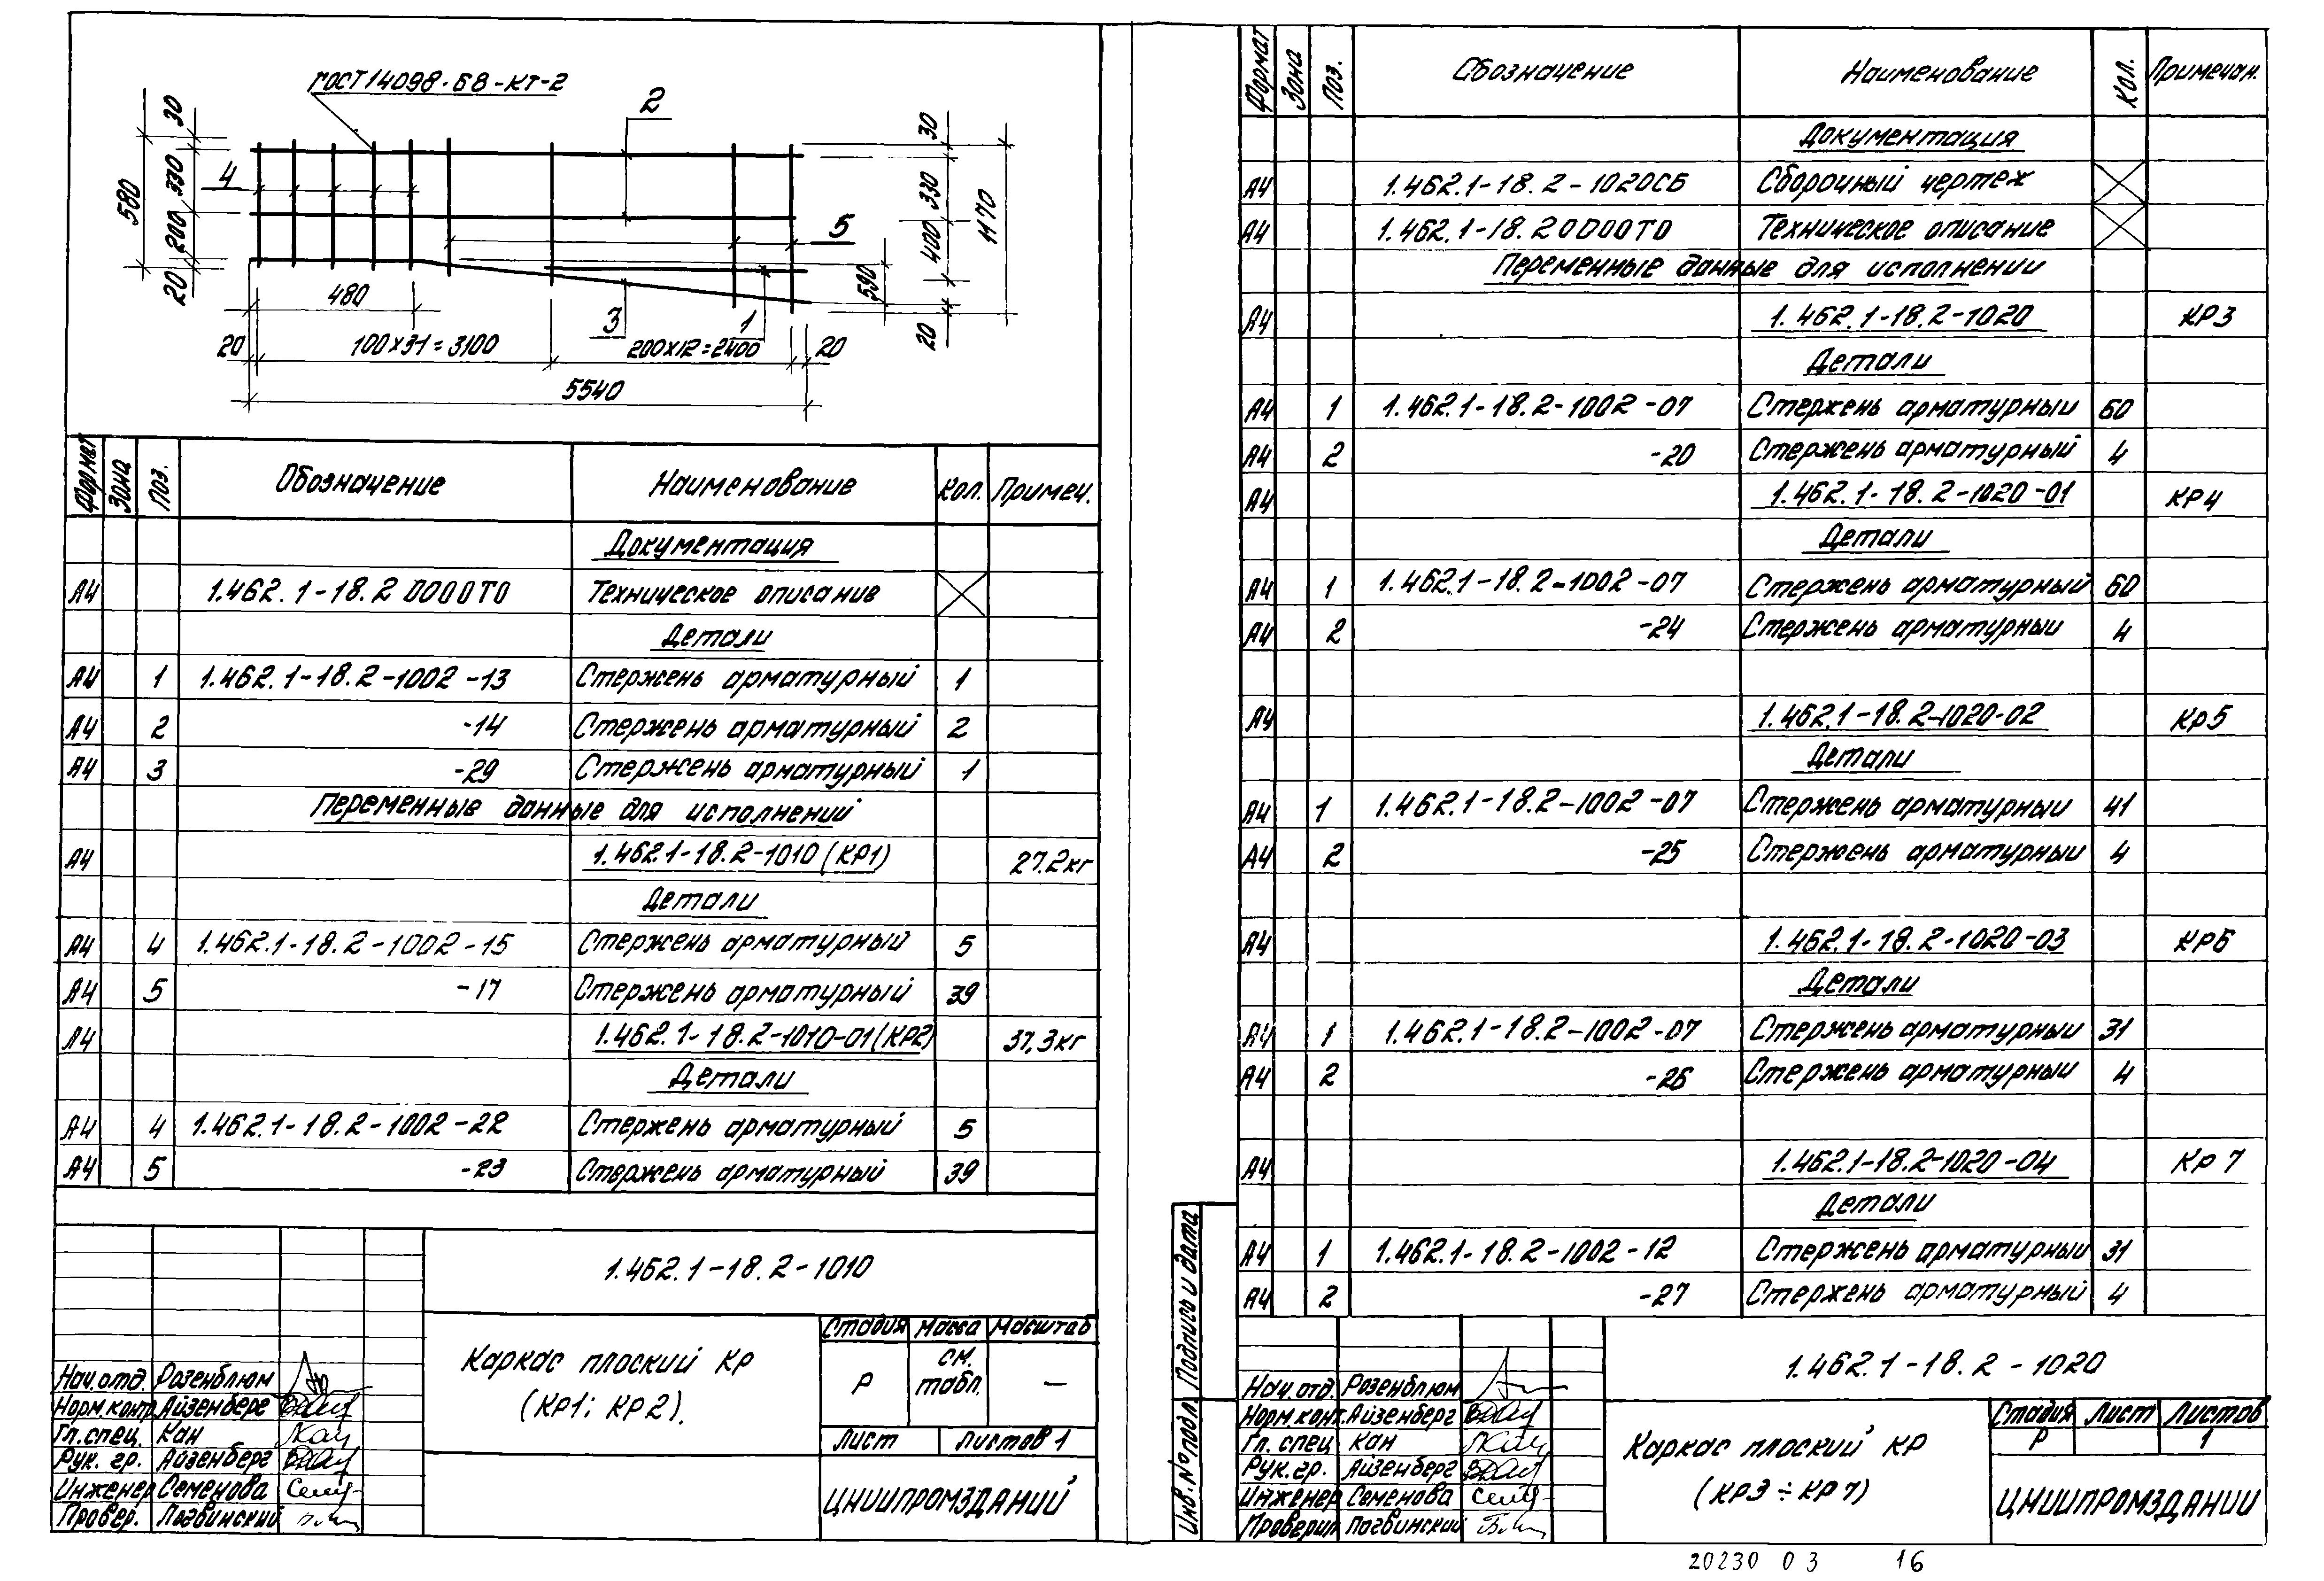 ГОСТ14098-68-КТ-2
2
30
330
580
200
20
4
5
30
330
400
20
1170
590
480
3
1
20
100х31=3100
200х12=2400
20
5540
Формат
Зона
Поз.
Обозначение
Наименование
Кол.
Примеч.
Документация
А4 1.462.1-18.2 0000Т0 Техническое описание
Детали
А4 1 1.462.1-18.2-1002-13 Стержень арматурный 1
А4 2 -14 Стержень арматурный 2
А4 3 -29 Стержень арматурный 1
Переменные данные для исполнений
А4 1.462.1-18.2-1010 (КР1) 27.2кг
Детали
А4 4 1.462.1-18.2-1002-15 Стержень арматурный 5
А4 5 -17 Стержень арматурный 39
А4 1.462.1-18.2-1010-01(КР2) 37.3кг
Детали
А4 4 1.462.1-18.2-1002-22 Стержень арматурный 5
А4 5 -23 Стержень арматурный 39
1.462.1-18.2-1010
Каркас плоский КР
(КР1; КР2).
Стадия Масса Масштаб
Р см. табл. —
Лист Листов 1
ЦНИИПРОМЗДАНИЙ
Нач.отд. Розенблюм
Норм.контр. Айзенберг
Гл.спец. Кан
Рук. гр. Айзенберг
Инженер Семенова
Провер. Логвинский
Формат
Зона
Поз.
Обозначение
Наименование
Кол.
Примечан.
Документация
А4 1.462.1-18.2-1020СБ Сборочный чертеж
А4 1.462.1-18.2 0000Т0 Техническое описание
Переменные данные для исполнении
А4 1.462.1-18.2-1020 КР3
Детали
А4 1 1.462.1-18.2-1002-07 Стержень арматурный 60
А4 2 -20 Стержень арматурный 4
А4 1.462.1-18.2-1020-01 КР4
Детали
А4 1 1.462.1-18.2-1002-07 Стержень арматурный 60
А4 2 -24 Стержень арматурный 4
А4 1.462.1-18.2-1020-02 Кр5
Детали
А4 1 1.462.1-18.2-1002-07 Стержень арматурный 41
А4 2 -25 Стержень арматурный 4
А4 1.462.1-18.2-1020-03 КР6
Детали
А4 1 1.462.1-18.2-1002-07 Стержень арматурный 31
А4 2 -26 Стержень арматурный 4
А4 1.462.1-18.2-1020-04 КР7
Детали
А4 1 1.462.1-18.2-1002-12 Стержень арматурный 31
А4 2 -27 Стержень арматурный 4
Подпись и дата
Инв.№подл.
1.462.1-18.2-1020
Каркас плоский КР
(КР3÷КР7)
Стадия Лист Листов
Р 1
ЦНИИПРОМЗДАНИИ
Нач.отд. Розенблюм
Норм.конт. Айзенберг
Гл. спец Кан
Рук.гр. Айзенберг
Инженер Семенова
Проверил Логвинский
20230 03 16